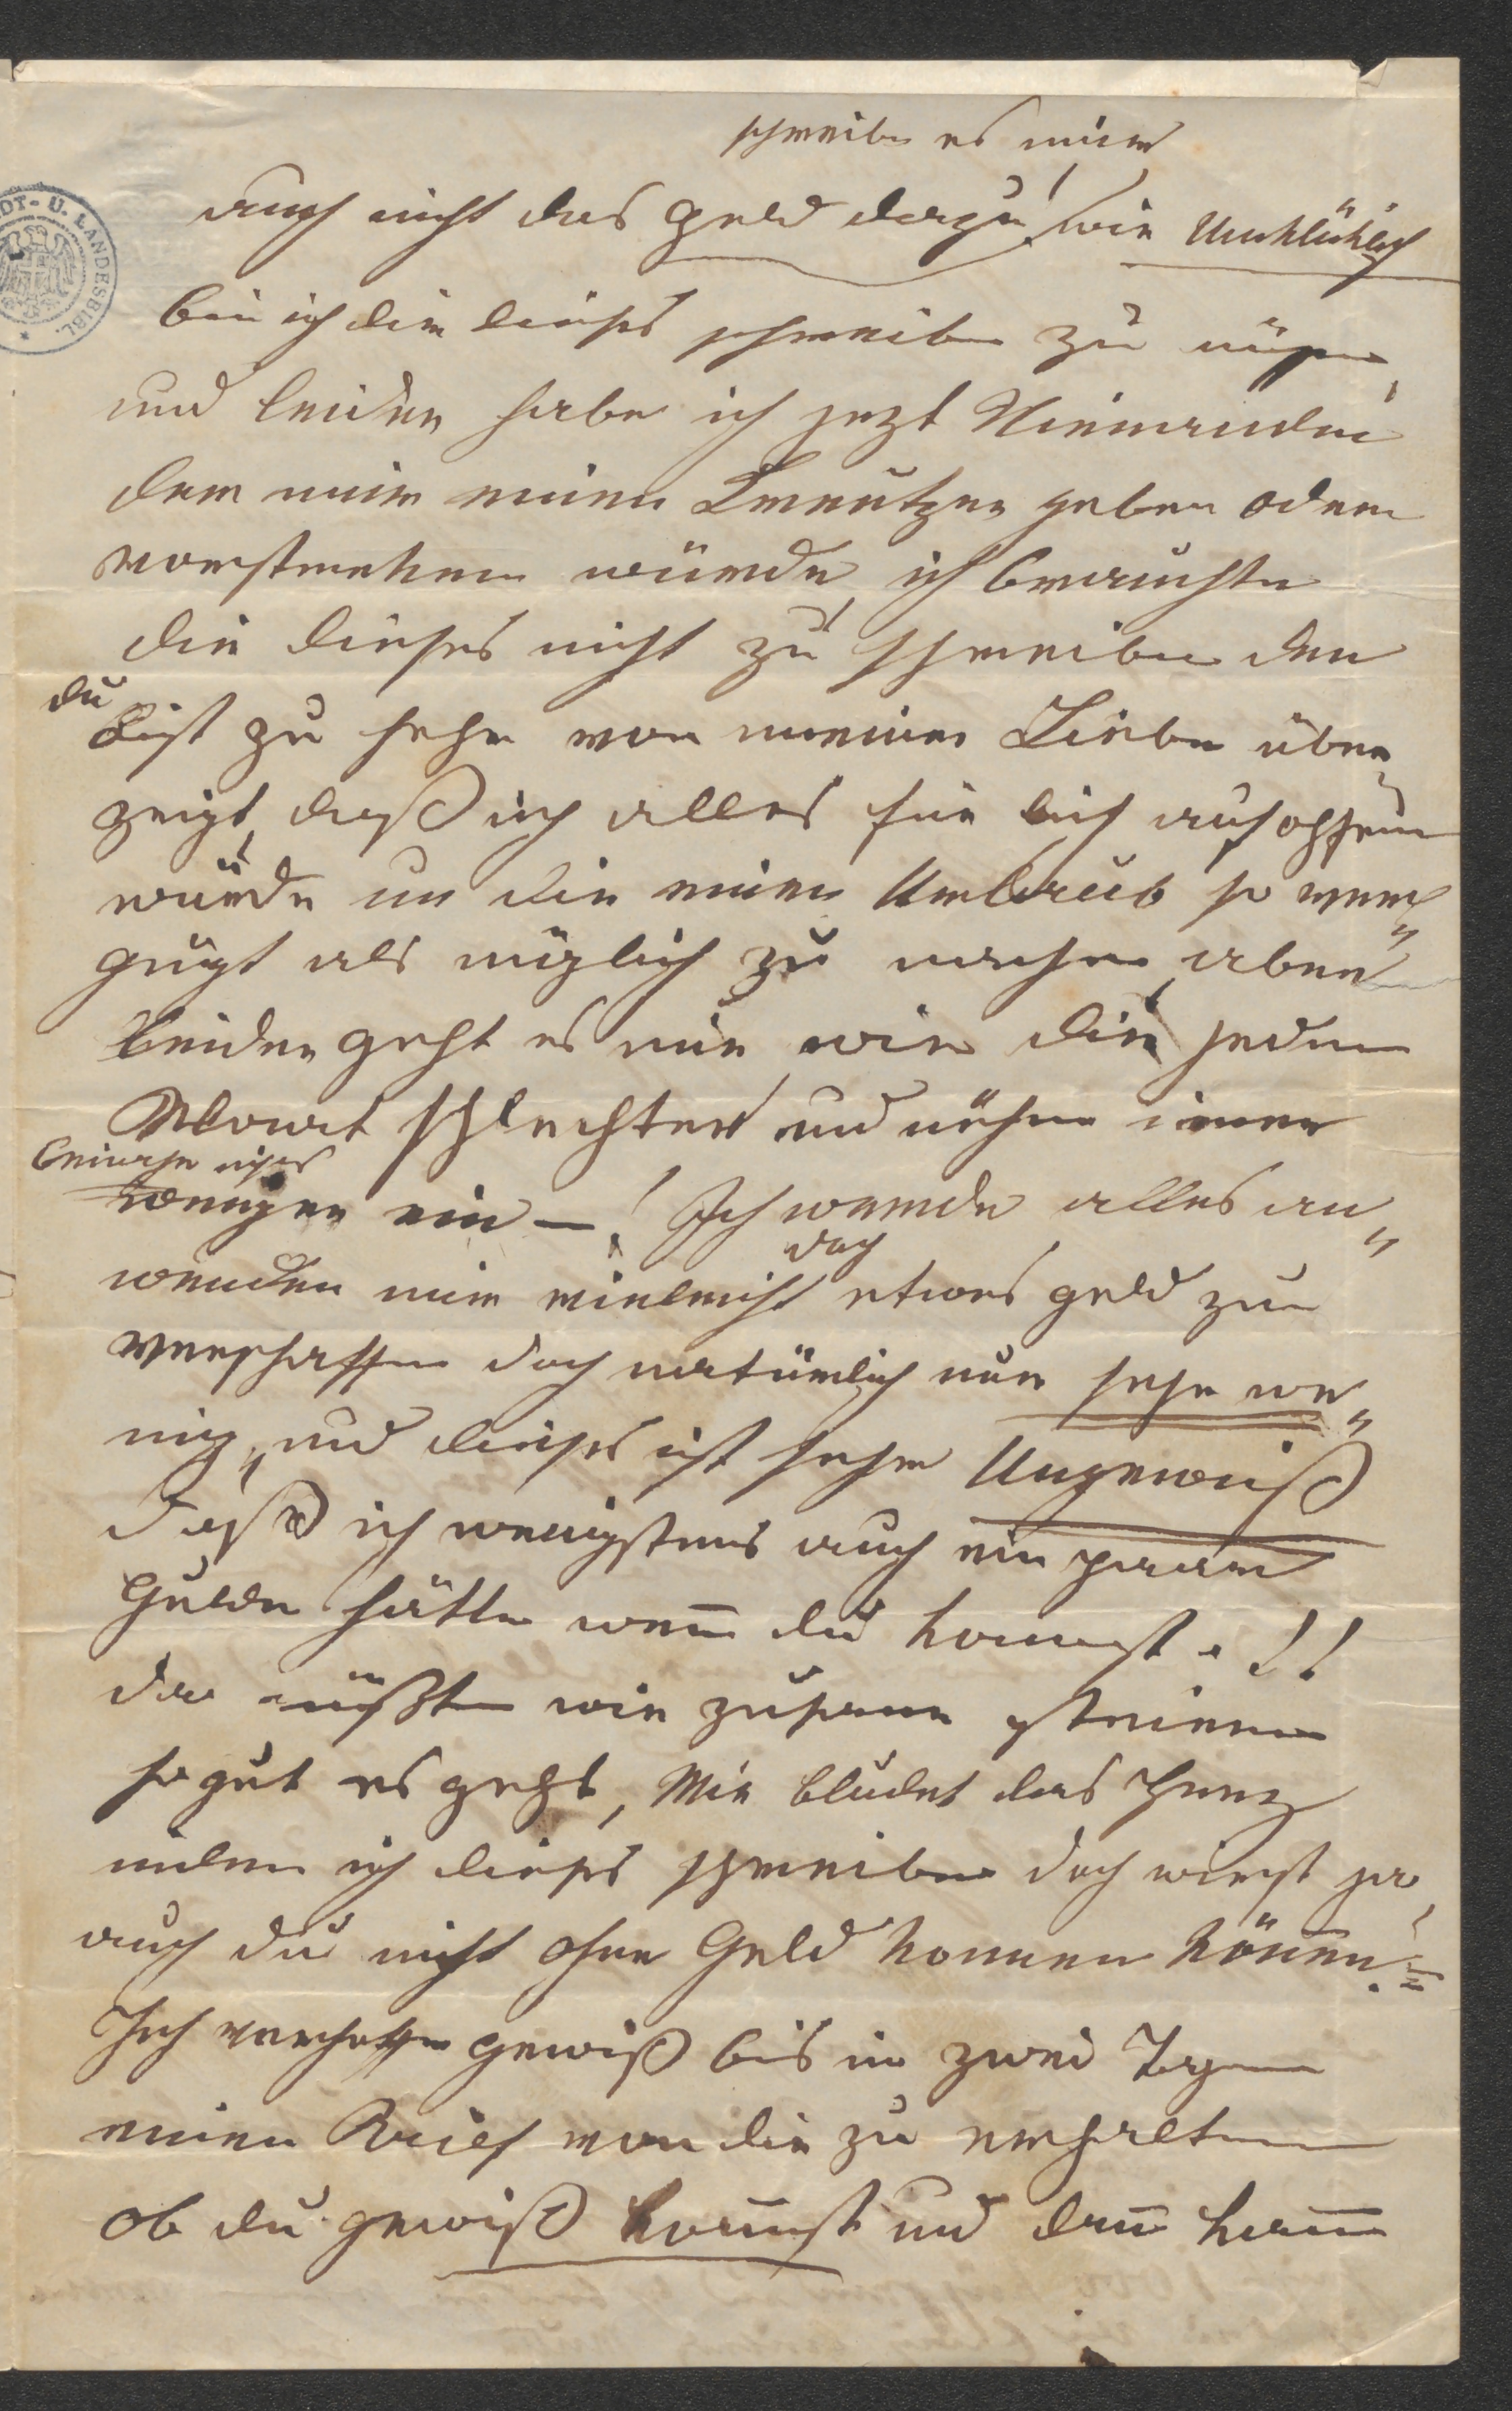 schreibe es mir
auch nicht das geld dazu! wie Unklüklich
bin ich dir dieses schreiben zu müßen
und leider habe ich jezt Niemanden
der mir einen Kreutzer geben oder
vorstreken würde, ich brauchte
dir dieses nicht zu schreiben den
du
bist zu sehr von meiner Liebe über„
zeigt, daß ich alles für dich aufopfern
würde um dir einen Urlaub so verg„
nügt als möglich zu machen, aber
Leider geht es mir wie dir jeden
Monat schlechter und nähme immer
beinahe nichts
weniger ein —! Ich werde alles an„
wenden mir vieleicht doch etwas geld zu
verschaffen doch natürlich nur sehr we„
nig, und dieses ist sehr Ungewiß
daß ich wenigstens auch ein paar
Gulden hätte weñ du kommst.!!
da müßten wir zusamen
so gut es geht, Mir bludet das Herz
indem ich dieses schreibe doch wirst ja
auch du nicht ohne Geld kommen könen.=
Ich verhoffe gewiß bis in zwei Tagen
einen Brief von dir zu erhalten
ob du gewiß komst und dañ kañ
STADT- U. LANDESBIBL.